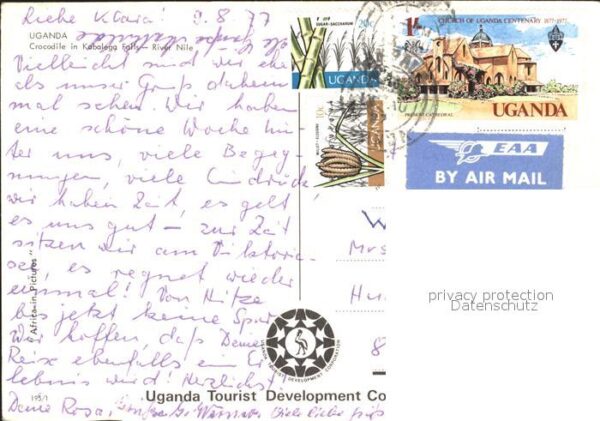 Liebe Klara! 9.8.77
UGANDA
Crocodile in Kabalega Falls — River Nile
Vielleicht sind wir eher
als unser Gruß daheim,
mal sehen. Wir haben
eine schöne Woche hin-
ter uns, viele Begeg-
nungen, viele Eindrücke,
wir haben Zeit, es geht
es uns gut – zur Zeit
sitzen wir am Viktoria-
see, es regnet wieder
einmal! Von Hitze
bis jetzt keine Spur
Wir hoffen, daß Deine
Reise ebenfalls ein Er-
lebnis wird! Herzlichst
Deine Rosa, Viele liebe
"Africa in Pictures"
195/1
Uganda Tourist Development Co
UGANDA TOURIST DEVELOPMENT CORPORATION
SUGAR-SACCHARUM
20c
UGANDA
10c
MILLET-ELEUSINE
UGANDA
1/-
CHURCH OF UGANDA CENTENARY 1877-1977
PRESENT CATHEDRAL
UGANDA
EAA
BY AIR MAIL
W
Mrs
8
privacy protection
Datenschutz